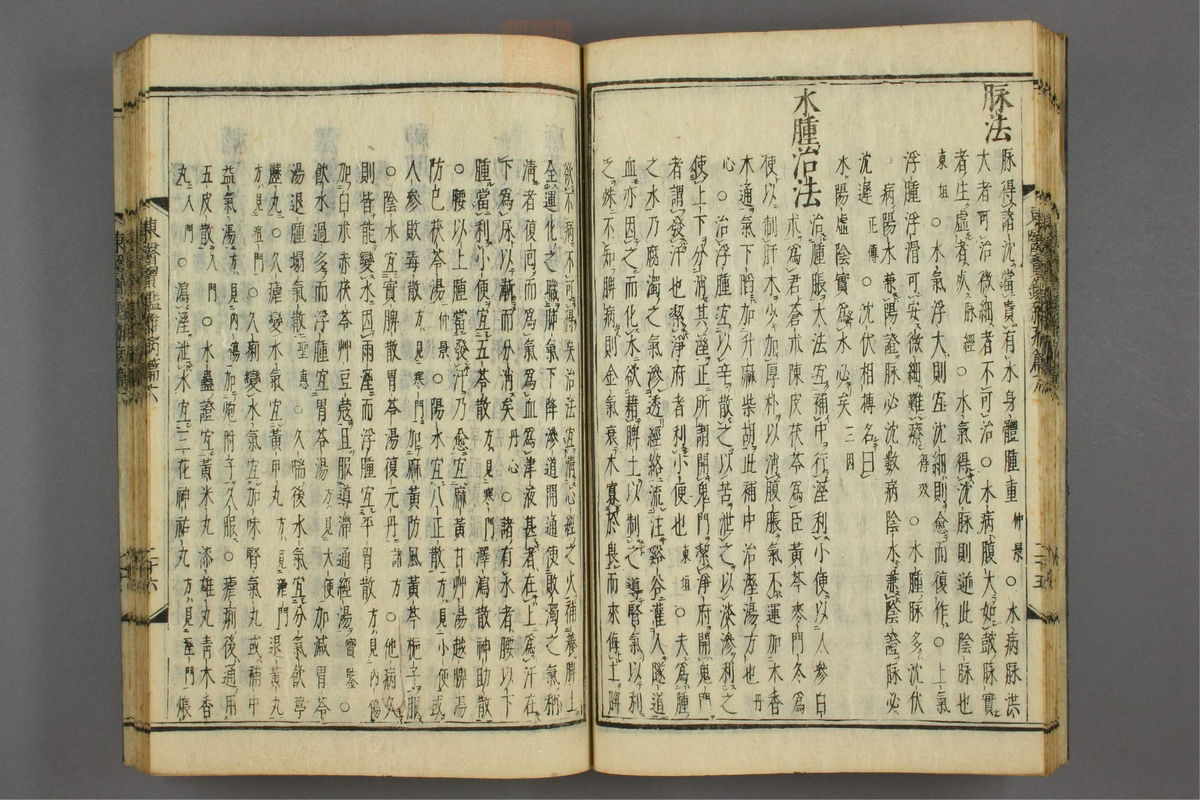 脉法
脉得諸沈當責有水身體腫重仲景○水病脉洪
大者可治微細者不可治○水病腹大如鼓脉實
者生虛者死脉經○水氣得沈脉則逆此陰脉也
東垣○水氣浮大則宜沈細則愈而復作○上氣
浮腫浮滑可安微細難療得效○水腫脉多沈伏
病陽水兼陽證脉必沈數病陰水兼陰證脉必
沈遲正傳○沈伏相搏名曰
水陽虛陰實爲水必矣三因
水腫治法
治腫脹大法宜補中行濕利小便以人參白
朮爲君蒼朮陳皮茯苓爲臣黃芩麥門冬爲
使以制肝木少加厚朴以消腹脹氣不運加木香
木通氣下陷加升麻柴胡此補中治水湯方也丹
心○治浮腫宜以辛散之以苦泄之以淡滲利之
使上下分消其濕正所謂開鬼門潔淨府開鬼門
者謂發汗也潔淨府者利小便也東垣○夫爲腫
之水乃腐濁之氣滲透經絡流注谿谷灌入隧道
血亦因之而化水欲藉脾土以制之導腎氣以利
之殊不知脾病則金氣衰木寡於畏而來侮土脾
欲不病不可得矣治法宜淸心經之火補養脾土
全運化之職肺氣下降滲道開通使敗濁之氣稍
淸者復回而爲氣爲血爲津液甚者在上爲汗在
下爲尿以漸而分消矣丹心○諸有水者腰以下
腫當利小便宜五苓散方見寒門澤瀉散神助散
○腰以上腫當發汗乃愈宜麻黃甘艸湯越脾湯
防已茯苓湯仲景○陽水宜八正散方見小便或
人參敗毒散方見寒門加麻黃防風黃芩梔子服
○陰水宜實脾散胃苓湯復元丹諸方○他病久
則皆能變水因雨濕而浮腫宜平胃散方見內傷
加白朮赤茯苓艸豆蔻且服導滯通經湯寶鑑○
飮水過多而浮腫宜胃苓湯方見大便加減胃苓
湯退腫塌氣散聖惠○久喘後水氣宜分氣飮葶
藶丸○久瘧變水氣宜黃甲丸方見瘧門退黃丸
方見疸門○久痢變水氣宜加味腎氣丸或補中
益氣湯方見內傷加炮附子久服○瘧痢後通用
五皮散入門○水蠱證宜黃米丸漆雄丸靑木香
丸入門○瀉濕泄水宜三花神祐丸方見濕門倀
東醫寶鑑雜病篇六
二十五
東醫寶鑑雜病篇六
二十六